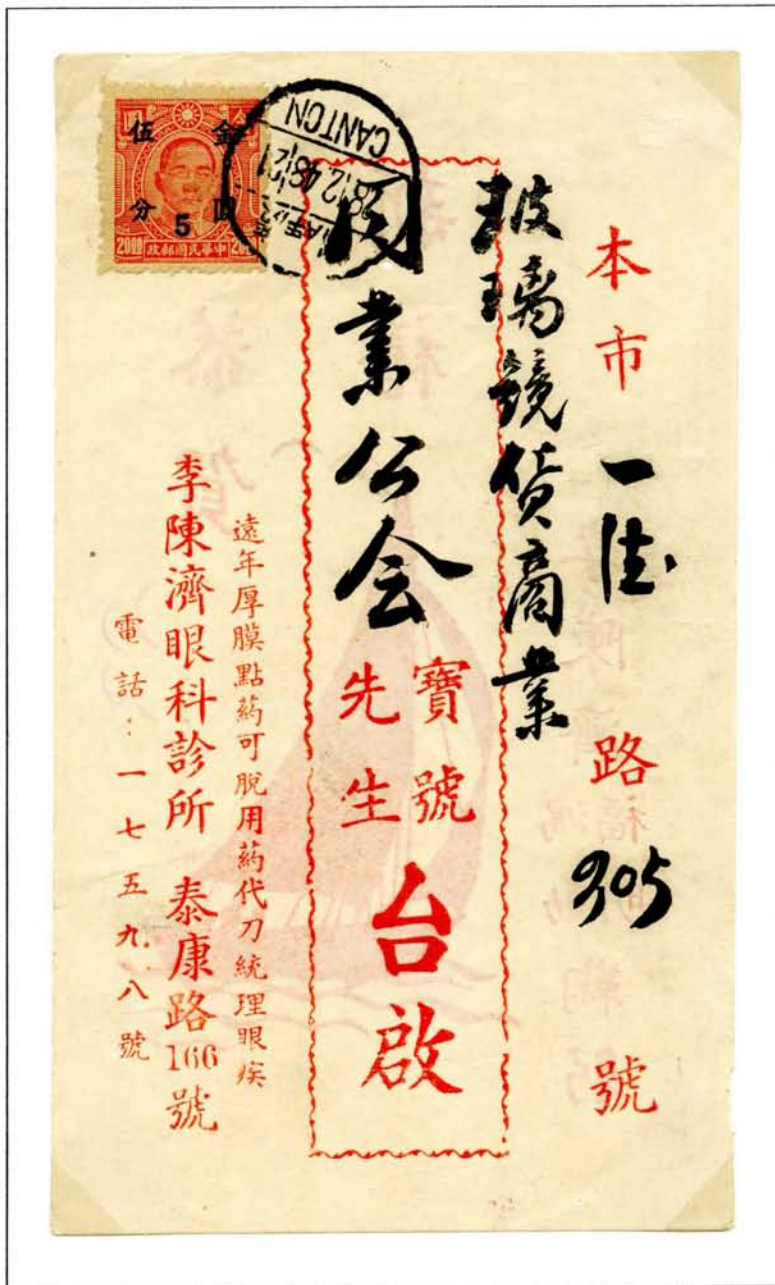 本市一德路905號
玻璃鏡貨商業
同業公会
寶號
先生
台啟
遠年厚膜點葯可脫用葯代刀統理眼疾
李陳濟眼科診所 泰康路166號
電話：一七五九八號
金圓
伍分
5
中華民國郵政
CANTON
28.12.48 | 21